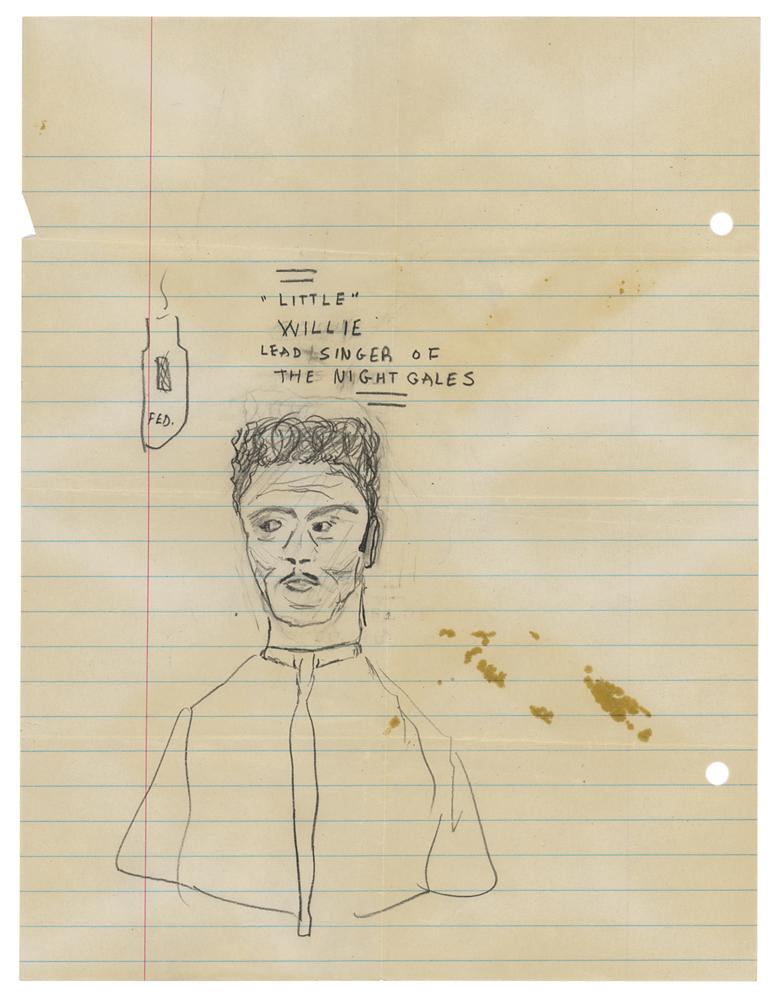 "LITTLE"
WILLIE
LEAD SINGER OF
THE NIGHT GALES
FED.